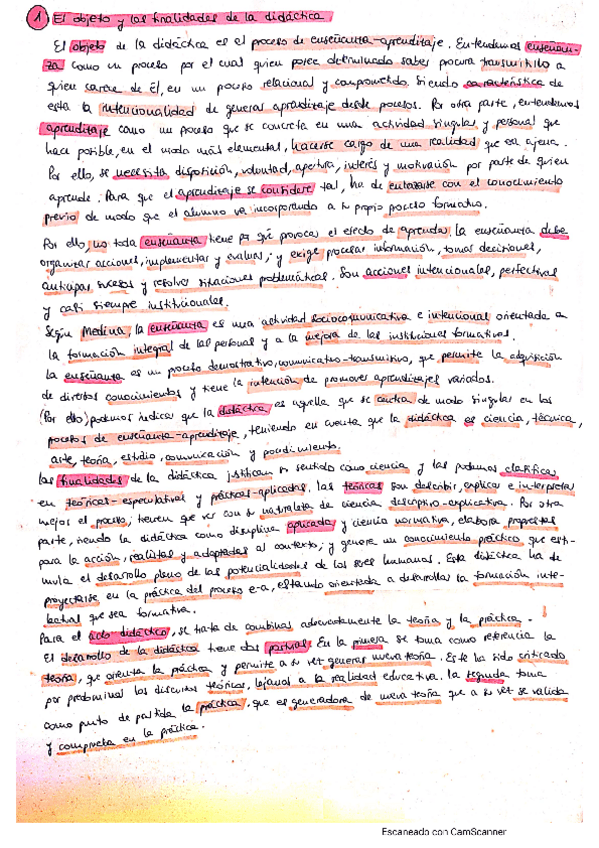 1 El objeto y las finalidades de la didáctica.
El objeto de la didáctica es el proceso de enseñanza-aprendizaje. Entendemos enseñan-
za como un proceso por el cual quien posee determinado saber procura transmitirlo a
quien carece de él, en un proceso relacional y comprometido. Siendo característica de
esta la intencionalidad de generar aprendizaje desde procesos. Por otra parte, entendemos
aprendizaje como un proceso que se concreta en una actividad singular y personal que
hace posible, en el modo más elemental, hacerse cargo de una realidad que era ajena.
Por ello, se necesita disposición, voluntad, apertura, interés y motivación por parte de quien
aprende. Para que el aprendizaje se considere tal, ha de enlazarse con el conocimiento
previo de modo que el alumno va incorporando a su propio proceso formativo.
Por ello, no toda enseñanza tiene por qué provocar el efecto de aprender. la enseñanza debe
organizar acciones, implementar y evaluar, y exige procesar información, tomar decisiones,
anticipar sucesos y resolver situaciones problemáticas. Son acciones intencionales, perfectivas
y casi siempre institucionales.
Según Medina, la enseñanza es una actividad sociocomunicativa e intencional orientada a
la formación integral de las personas y a la mejora de las instituciones formativas.
la enseñanza es un proceso demostrativo, comunicativo-transmisivo, que permite la adquisición
de diversos conocimientos y tiene la intención de promover aprendizajes variados.
(Por ello) podemos indicar que la didáctica es aquella que se centra de modo singular en los
procesos de enseñanza-aprendizaje, teniendo en cuenta que la didáctica es ciencia, técnica,
arte, teoría, estudio, comunicación y procedimiento.
las finalidades de la didáctica justifican su sentido como ciencia y las podemos clasificar
en teóricas-especulativas y prácticas-aplicadas. las teóricas son describir, explicar e interpretar
mejor el proceso; tienen que ver con su naturaleza de ciencia descriptivo-explicativa. Por otra
parte, siendo la didáctica como disciplina aplicada y ciencia normativa, elabora propuestas
para la acción, realistas y adaptadas al contexto; y genera un conocimiento práctico que esti-
mula el desarrollo pleno de las potencialidades de los seres humanos. Esta didáctica ha de
proyectarse en la práctica del proceso e-a, estando orientada a desarrollar la formación inte-
lectual que sea formativa.
Para el ciclo didáctico, se trata de combinar adecuadamente la teoría y la práctica.
El desarrollo de la didáctica tiene dos posturas. En la primera se toma como referencia la
teoría, que orienta la práctica y permite a su vez generar nueva teoría. Este ha sido criticado
por predominar los discursos teóricos, lejanos a la realidad educativa. la segunda toma
como punto de partida la práctica, que es generadora de nueva teoría que a su vez se valida
y comprueba en la práctica.
Escaneado con CamScanner